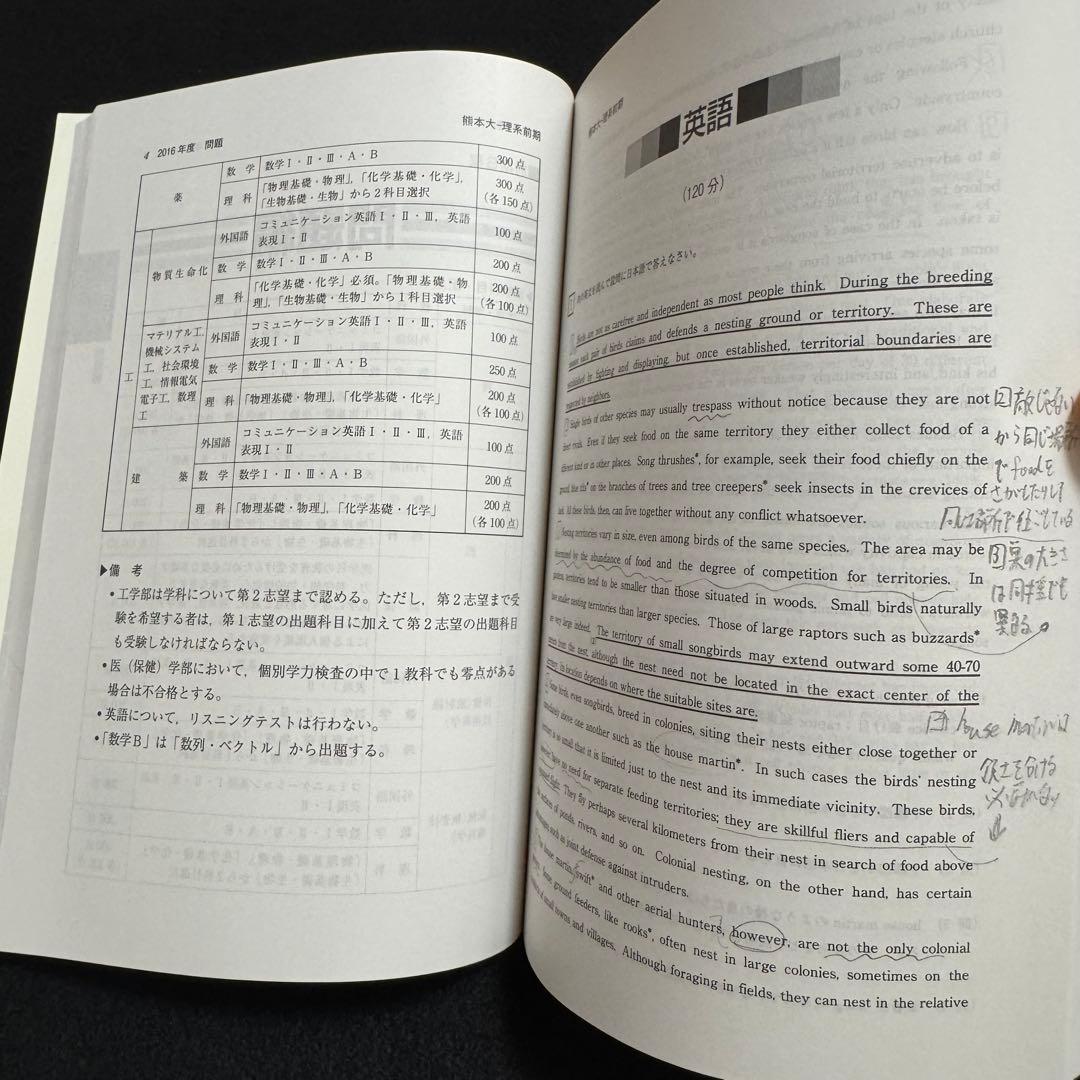 4 2016年度 問題
熊本大-理系前期
薬
数学
数学Ⅰ・Ⅱ・Ⅲ・A・B
300点
理科
「物理基礎・物理」,「化学基礎・化学」,
「生物基礎・生物」から2科目選択
300点
(各150点)
工
物質生命化
外国語
コミュニケーション英語Ⅰ・Ⅱ・Ⅲ, 英語
表現Ⅰ・Ⅱ
100点
数学
数学Ⅰ・Ⅱ・Ⅲ・A・B
200点
理科
「化学基礎・化学」必須。「物理基礎・物
理」,「生物基礎・生物」から1科目選択
200点
(各100点)
マテリアル工,
機械システム
工, 社会環境
工, 情報電気
電子工, 数理
工
外国語
コミュニケーション英語Ⅰ・Ⅱ・Ⅲ, 英語
表現Ⅰ・Ⅱ
100点
数学
数学Ⅰ・Ⅱ・Ⅲ・A・B
250点
理科
「物理基礎・物理」,「化学基礎・化学」
200点
(各100点)
建築
外国語
コミュニケーション英語Ⅰ・Ⅱ・Ⅲ, 英語
表現Ⅰ・Ⅱ
100点
数学
数学Ⅰ・Ⅱ・Ⅲ・A・B
200点
理科
「物理基礎・物理」,「化学基礎・化学」
200点
(各100点)
▶備考
・工学部は学科について第2志望まで認める。ただし, 第2志望まで受
験を希望する者は, 第1志望の出題科目に加えて第2志望の出題科目
も受験しなければならない。
・医(保健)学部において, 個別学力検査の中で1教科でも零点がある
場合は不合格とする。
・英語について, リスニングテストは行わない。
・「数学B」は「数列・ベクトル」から出題する。
熊本大-理系前期
英語
(120分)
次の英文を読んで設問に日本語で答えなさい。
Birds are not as carefree and independent as most people think. During the breeding
season each pair of birds claims and defends a nesting ground or territory. These are
established by fighting and displaying, but once established, territorial boundaries are
respected by neighbors.
Single birds of other species may usually trespass without notice because they are not
direct rivals. Even if they seek food on the same territory they either collect food of a
different kind or in other places. Song thrushes*, for example, seek their food chiefly on the
ground, blue tits* on the branches of trees and tree creepers* seek insects in the crevices of
bark. All these birds, then, can live together without any conflict whatsoever.
Nesting territories vary in size, even among birds of the same species. The area may be
determined by the abundance of food and the degree of competition for territories. In
territories tend to be smaller than those situated in woods. Small birds naturally
have smaller nesting territories than larger species. Those of large raptors such as buzzards*
are very large indeed. The territory of small songbirds may extend outward some 40-70
meters from the nest, although the nest need not be located in the exact center of the
territory. Its location depends on where the suitable sites are.
Some birds, even songbirds, breed in colonies, siting their nests either close together or
immediately above one another such as the house martin*. In such cases the birds' nesting
territory is so small that it is limited just to the nest and its immediate vicinity. These birds,
have no need for separate feeding territories; they are skillful fliers and capable of
flight. They fly perhaps several kilometers from their nest in search of food above
the surfaces of ponds, rivers, and so on. Colonial nesting, on the other hand, has certain
such as joint defense against intruders.
The house martin, swift* and other aerial hunters, however, are not the only colonial
Some ground feeders, like rooks*, often nest in large colonies, sometimes on the
of small towns and villages. Although foraging in fields, they can nest in the relative
から同じ
foodを
さがしたりして
house martinは